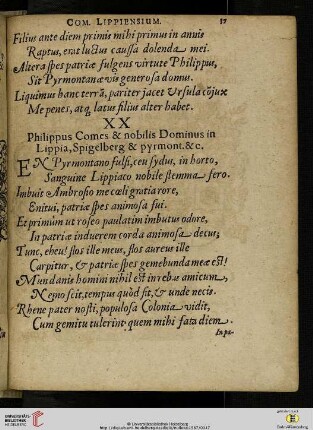 COM. LIPPIENSIUM. 17
Filius ante diem primis mihi primus in annis
Raptus, eras luctus caussa dolenda mei.
Altera spes patriæ fulgens virtute Philippus,
Sit Pyrmontanæ vis generosa domus.
Liquimus hanc terrã, pariter jacet Ursula cõjux
Me penes, atq; latus filius alter habet.
XX
Philippus Comes & nobilis Dominus in
Lippia, Spigelberg & pyrmont. &c.
EN Pyrmontano fulsi, ceu sydus, in horto,
Sanguine Lippiaco nobile stemma fero.
Imbuit Ambrosio me cœli gratia rore,
Enitui, patriæ spes animosa fui.
Et primùm ut roseo paulatim imbutus odore,
In patriã induerem corda animosa decus;
Tunc, eheu! flos ille meus, flos aureus ille
Carpitur, & patriæ spes gemebunda mea est!
Mundanis homini nihil est in rebus amicum,
Nemo scit, tempus quòd sit, & unde necis.
Rhene pater nosti, populosa Colonia vidit,
Cum gemitu tulerint quem mihi fata diem.
In pa-
UNIVERSITÄTS-
BIBLIOTHEK
HEIDELBERG
© Universitätsbibliothek Heidelberg